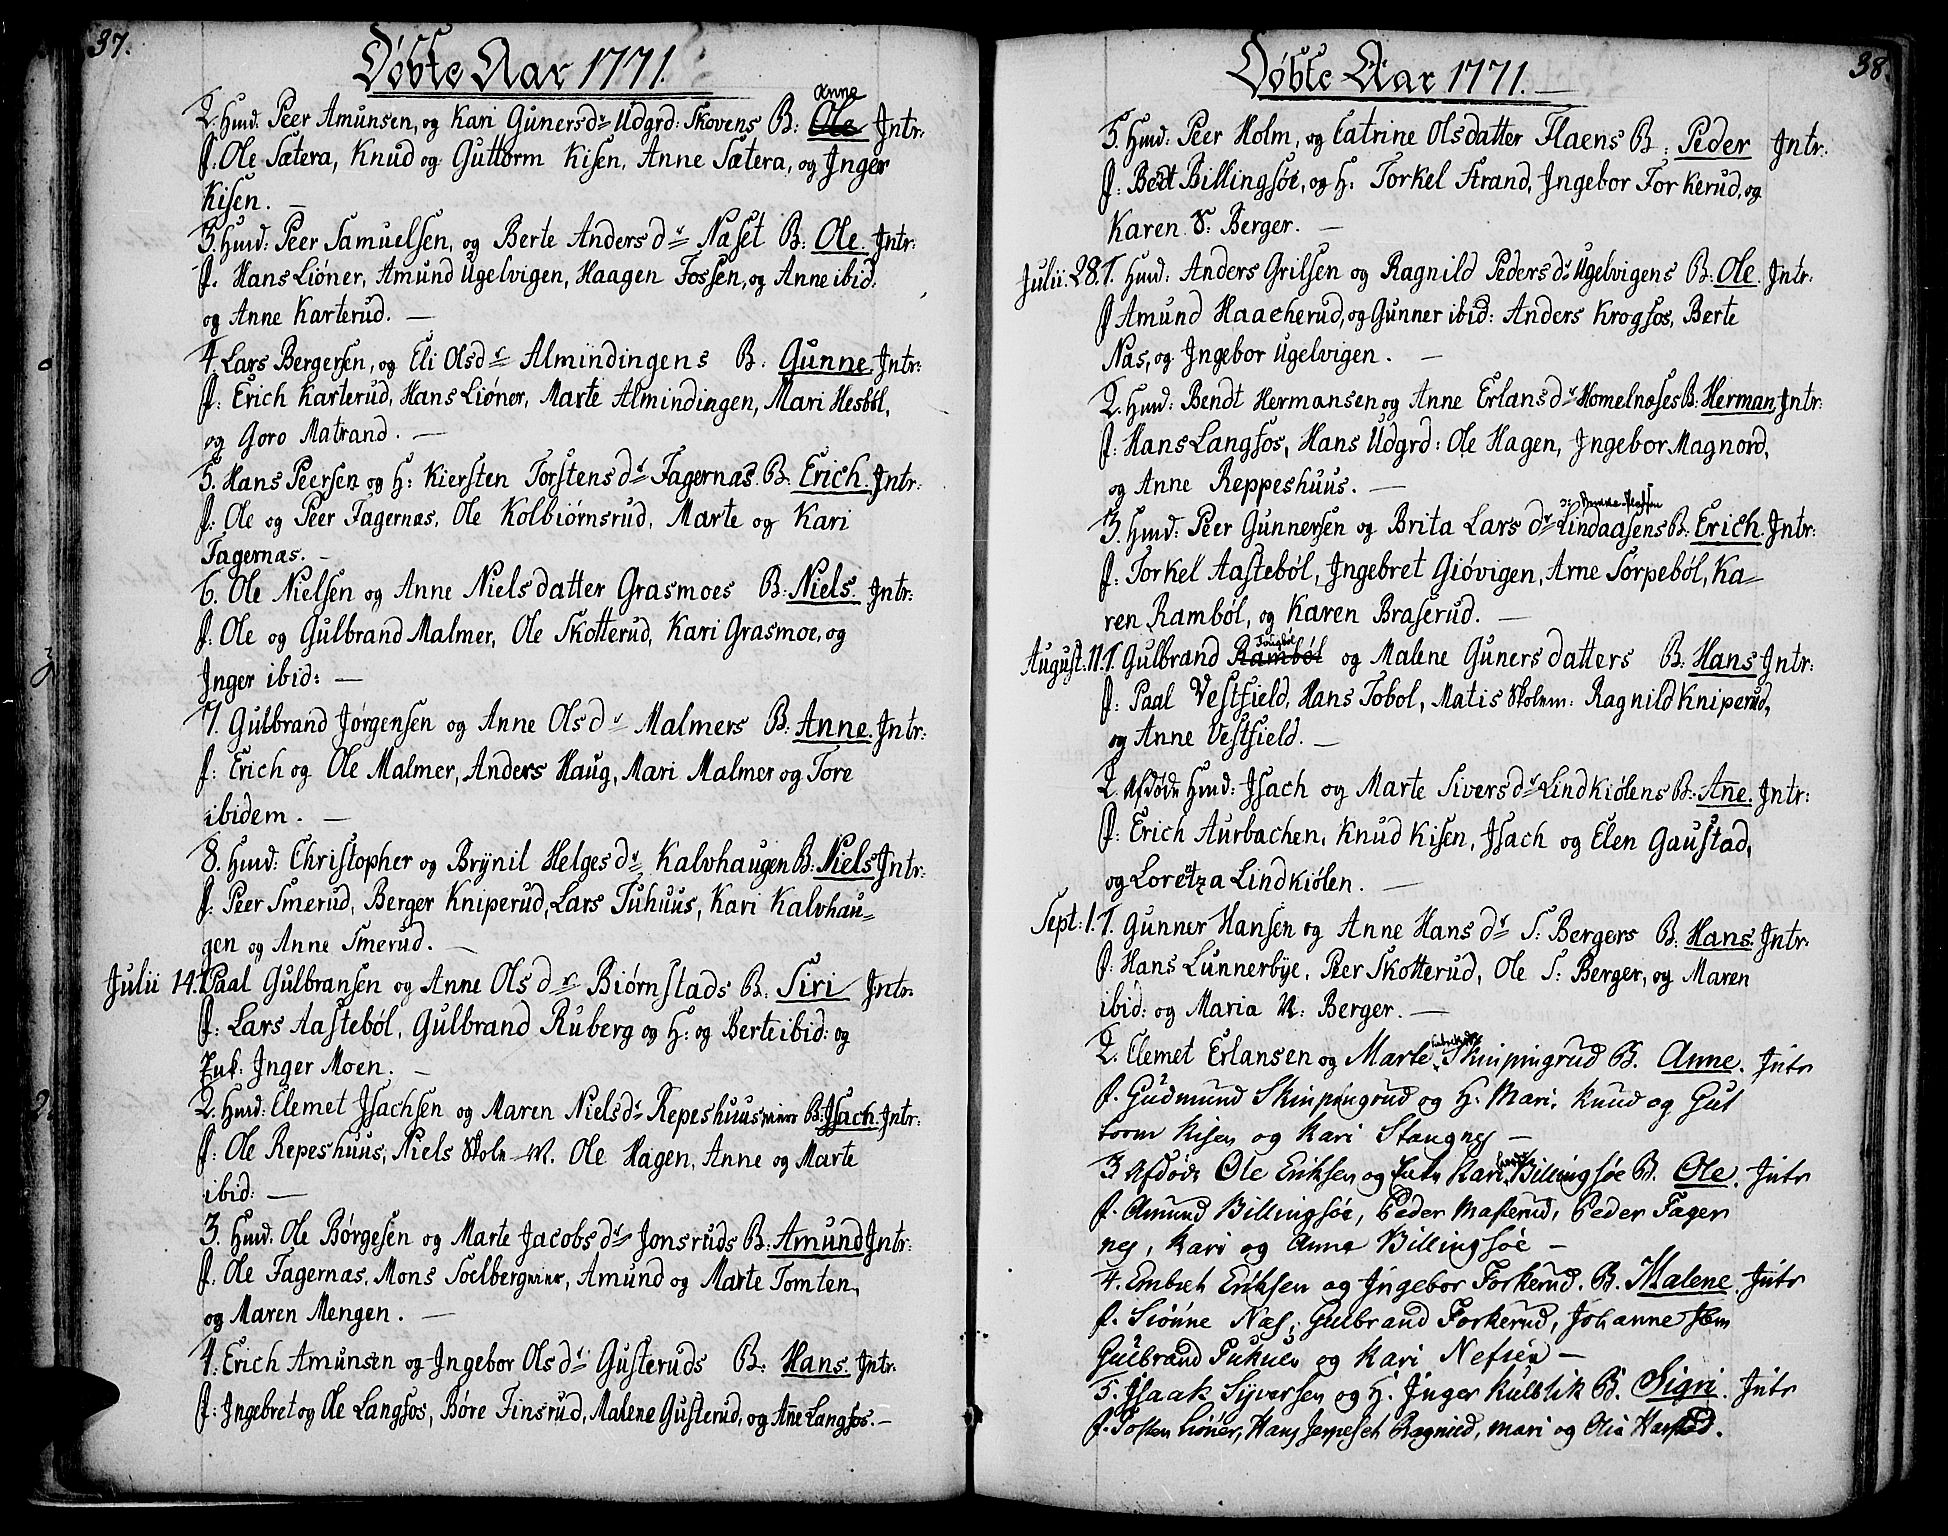 37.
Döbte Aar 1771.
2. Hmd. Peer Amunsen, og Kari Gunersdr Udgrd: Skovens B: Ole Anne Intr:
f: Ole Sætera, Knud og Guttorm Kisen, Anne Sætera, og Inger
Kisen. —
3. Hmd: Peer Samuelsen, og Berte Andersdr Naset B: Ole. Intr:
f. Hans Liöner, Amund Ugelvigen, Haagen Fossen, og Anne ibid:
og Anne Karterud. —
4. Lars Bergersen, og Eli Olsdr Almindingens B: Gunne. Intr:
f: Erich Karterud, Hans Liöner, Marte Almindingen, Mari Hesböl,
og Goro Matrand. —
5. Hans Peersen og H: Kiersten Torstensdr Fagernas. B. Erich. Intr:
f: Ole og Peer Fagernas, Ole Kolbiörnsrud, Marte og Kari
Fagernas. —
6. Ole Nielsen og Anne Nielsdatter Grasmoes B: Niels. Intr:
f: Ole og Gulbrand Malmer, Ole Skotterud, Kari Grasmoe, og
Inger ibid: —
7. Gulbrand Jörgensen og Anne Olsdr Malmers B: Anne. Intr:
f: Erich og Ole Malmer, Anders Haug, Mari Malmer og Tore
ibidem. —
8. Hmd: Christopher og Brynil Helgesdr Kalvhaugen B: Niels Intr:
f: Peer Smerud, Berger Kniperud, Lars Tuhuus, Kari Kalvhau=
gen og Anne Smerud. —
Julii 14. 1. Paal Gulbransen og Anne Olsdr Biörnstads B: Siri Intr.
f: Lars Aasteböl, Gulbrand Ruberg og H: og Berte ibid: og
Enk: Inger Moen. —
2. Hmd: Elemet Isachsen og Maren Nielsdr Repeshuus B: Isach. Intr:
f: Ole Repeshuus, Niels Skole M. Ole Hagen, Anne og Marte
ibid: —
3. Hmd. Ole Börgesen og Marte Jacobsdr Jonsruds B: Amund Intr:
f. Ole Fagernas, Mons Soelberg, Amund og Marte Tomten,
og Maren Mengen. —
4. Erich Amunsen og Ingebor Olsdr Gusteruds B: Hans. Intr.
f: Ingebret og Ole Langsos, Böre Finsrud, Malene Gusterud, og Añe Langsos. —
38.
Döbte Aar 1771. —
5. Hmd: Peer Holm, og Catrine Olsdatter Flaens B: Peder Intr:
f: Bent Billingsöe, og H: Torkel Strand, Ingebor Torkerud, og
Karen S: Berger. —
Julii. 28. 1. Hmd: Anders Grilsen og Ragnild Pedersdr Ugelvigens B: Ole. Intr:
f Amund Haacherud, og Gunner ibid: Anders Krogsos, Berte
Nas, og Ingebor Ugelvigen. —
2. Hmd: Bendt Hermansen og Anne Erlansdr Homelnases B: Herman, Intr:
f: Hans Langsos, Hans Udgrd: Ole Hagen, Ingebor Magnord,
og Anne Reppeshuus. —
3. Hmd: Peer Gunnersen og Brita Larsdr Lindaasens B: Erich. Intr:
f: Torkel Aasteböl, Ingebret Giövigen, Arne Torpeböl, Ka=
ren Ramböl, og Karen Braserud. —
August. 11. 1. Gulbrand Ramböl og Malene Gunersdatters B: Hans Intr:
f: Paal Vestfield, Hans Tobol, Matis Skolem: Ragnild Kniperud,
og Anne Vestfield. —
2. Afdöde Hmd: Isach og Marte Siversdr Lindkiölens B: Añe. Intr:
f: Erich Aurbachen, Knud Kisen, Isach og Elen Gaustad,
og Loretza Lindkiölen. —
Sept: 1. 1. Gunner Hansen og Anne Hansdr S: Bergers B: Hans Intr:
f: Hans Lunnerbye, Peer Skotterud, Ole S: Berger, og Maren
ibid: og Maria N: Berger. —
2. Elemet Erlansen og Marte Skinpingrud B. Anne. Intr
f. Gudmund Skinpingrud og H. Mari, Knud og Gut
torm Kisen og Kari Stangnes —
3 Afdöde Ole Eriksen og Enke Kari Billingsöe B. Ole. Intr
f. Amund Billingsöe, Peder Masterud, Peder Fager
nes, Kari og Anne Billingsöe —
4. Embret Eriksen og Ingebor Torkerud. B. Malene Intr
f. Siönne Nas, Gulbrand Torkerud, Johanne
Gulbrand Tukuer og Kari Nefsen —
5. Isaak Syversen og H. Inger Kulblik B. Sigri. Intr
f. Tosten Liöner, Hans Serpeset Ragnild, Mari og Olia Harstad.